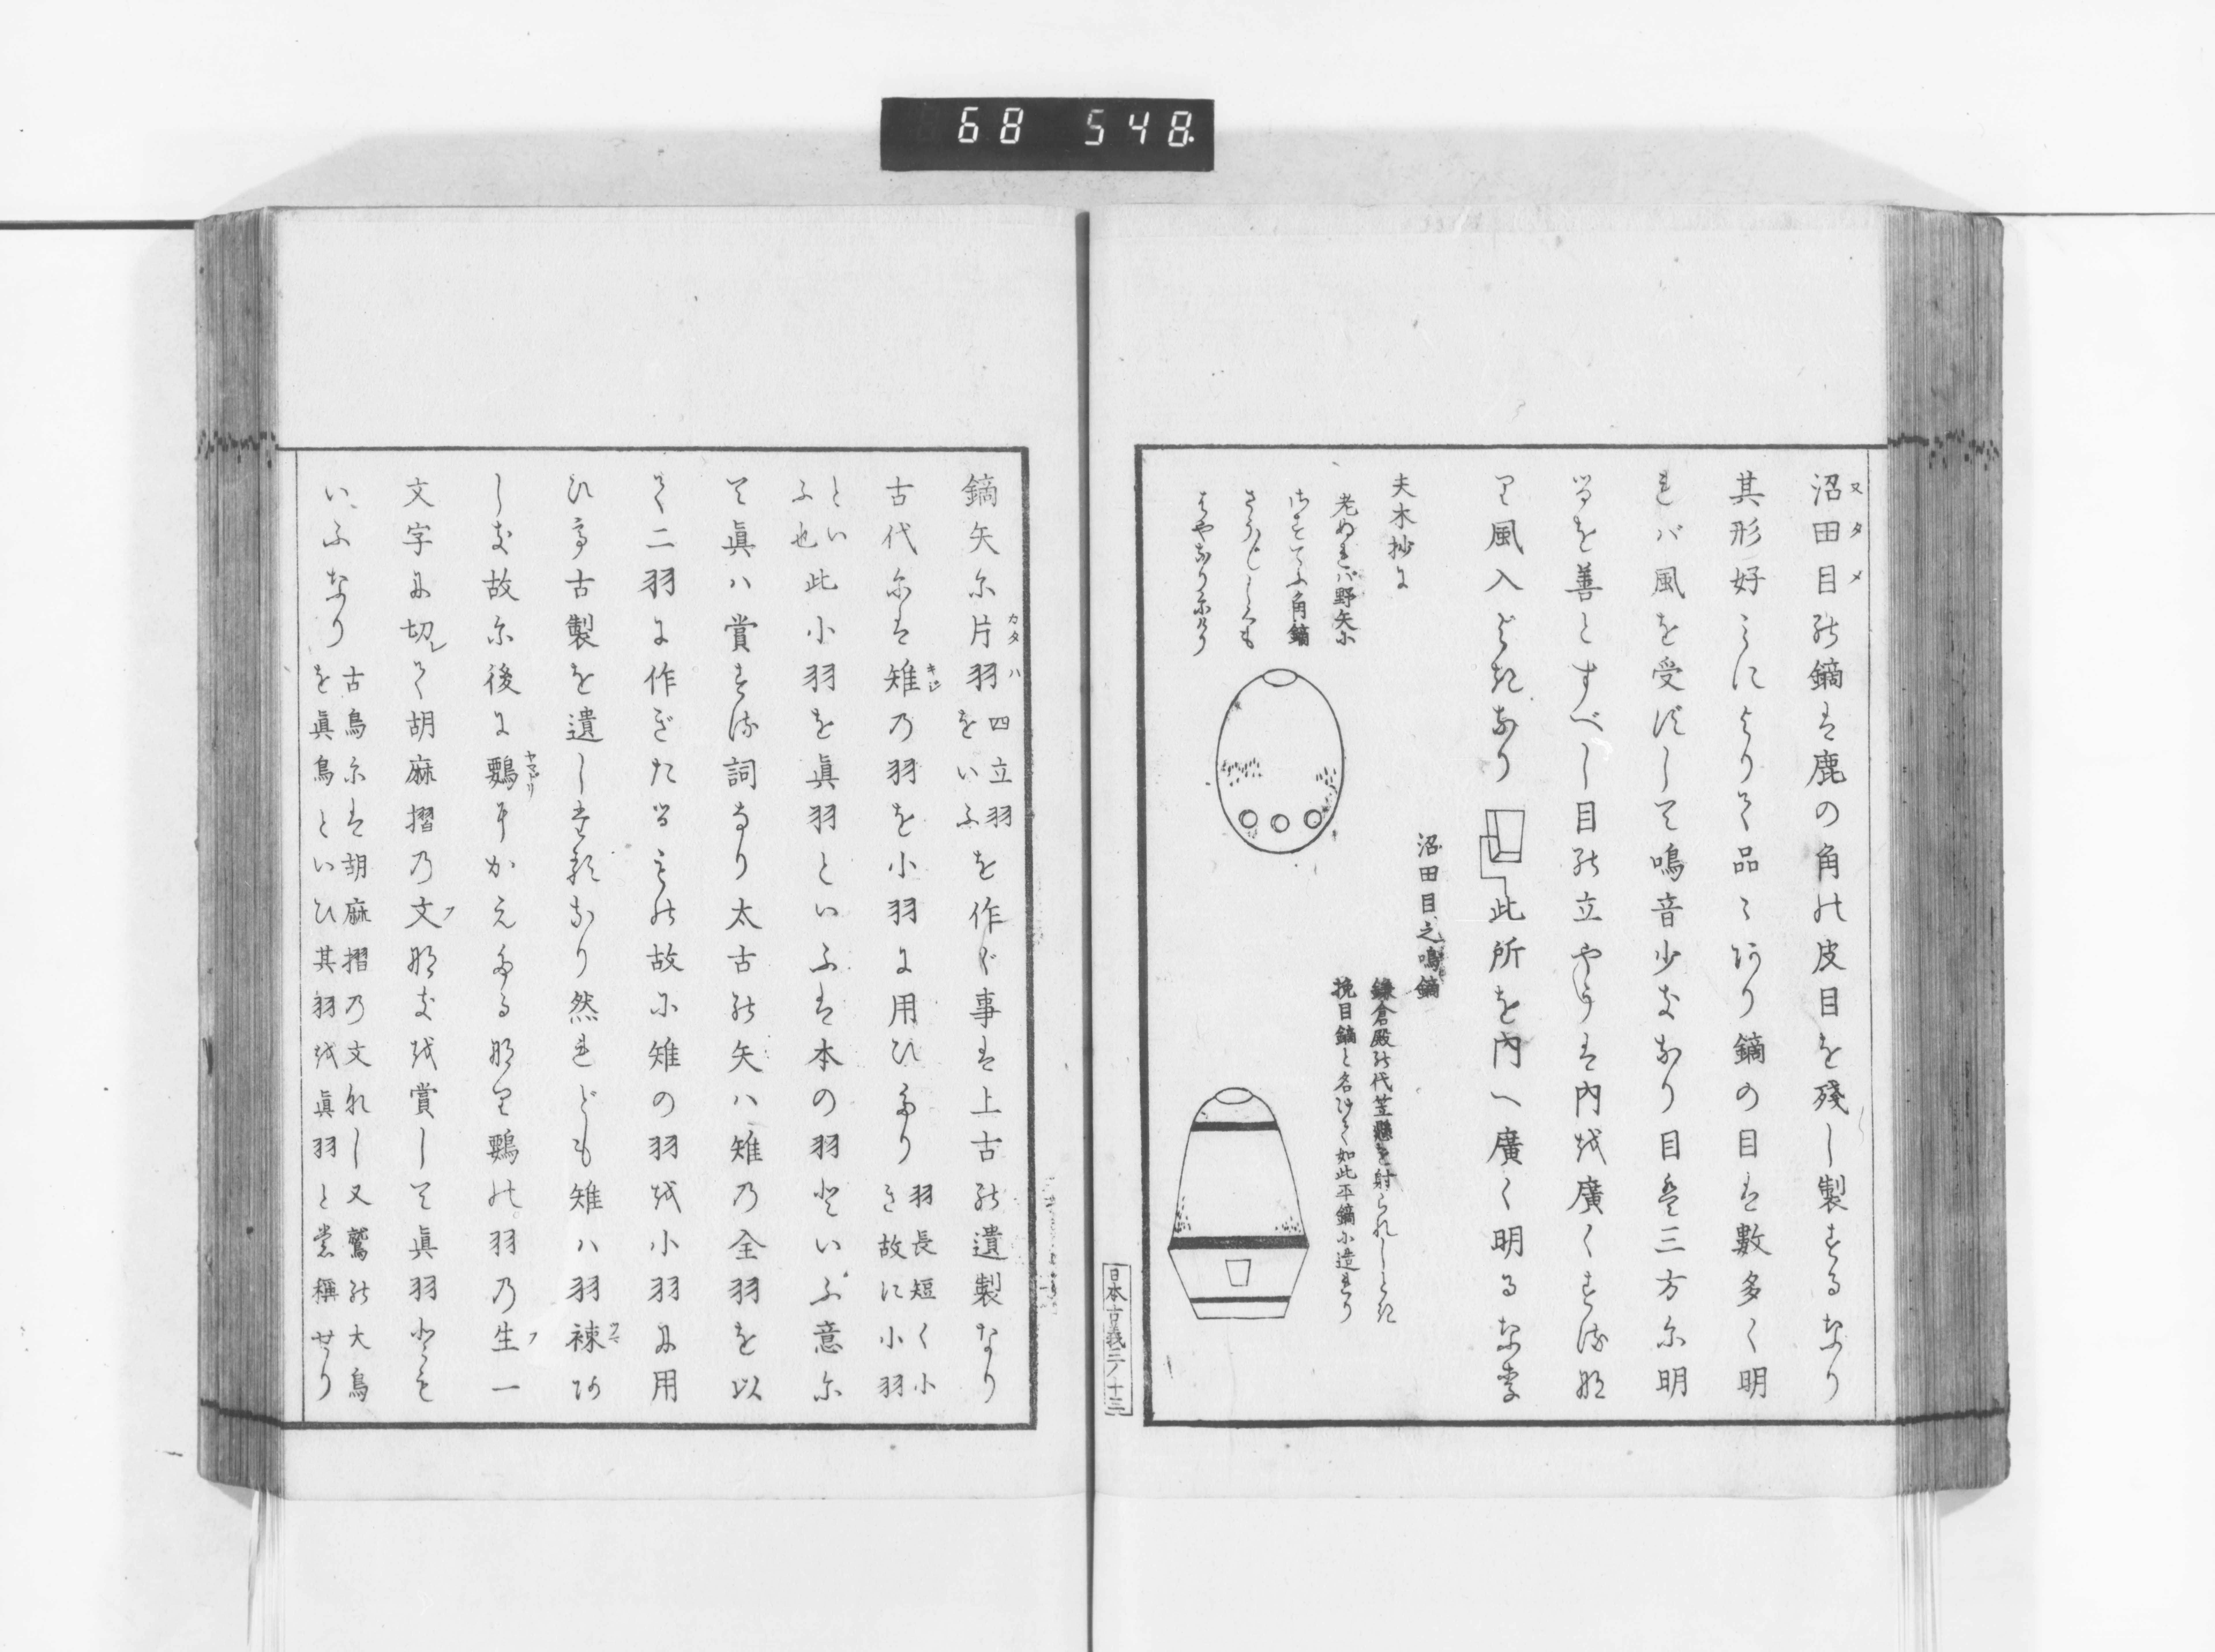 68 548.
沼田目の鏑は鹿の角の皮目を殘し製するなり
其形好みによりて品々あり鏑の目は數多く明
れバ風を受ずして鳴音少きなり目は三方に明
るを善とすべし目の立やうは內を廣くする那
り風入よきなり
此所を內へ廣く明るなり
沼田目之鳴鏑
鎌倉殿の代笠懸を射られしとき
挽目鏑と名つけて如此平鏑に造れり
夫木抄に
老ぬれバ野矢に
さすてふ角鏑
はやなりにけり
日本古義二ノ十三
鏑矢に片羽四立羽
をいふを作ぐ事は上古の遺製なり
古代には雉の羽を小羽に用ひたり羽長短く小
き故に小羽
とい
ふ也此小羽を眞羽といふは本の羽といふ意に
て眞ハ賞する詞なり太古の矢ハ雉の全羽を以
て二羽に作ぎたるもの故に雉の羽を小羽に用
ひて古製を遺したるなり然れども雉ハ羽竦あ
しき故に後に鸐にかえたるなり鸐の羽の生一
文字に切レて胡麻摺の文なきを賞して眞羽とも
いふなり古鳥には胡麻摺の文れし又鷲の大鳥
を眞鳥といひ其羽を眞羽と賞稱せり